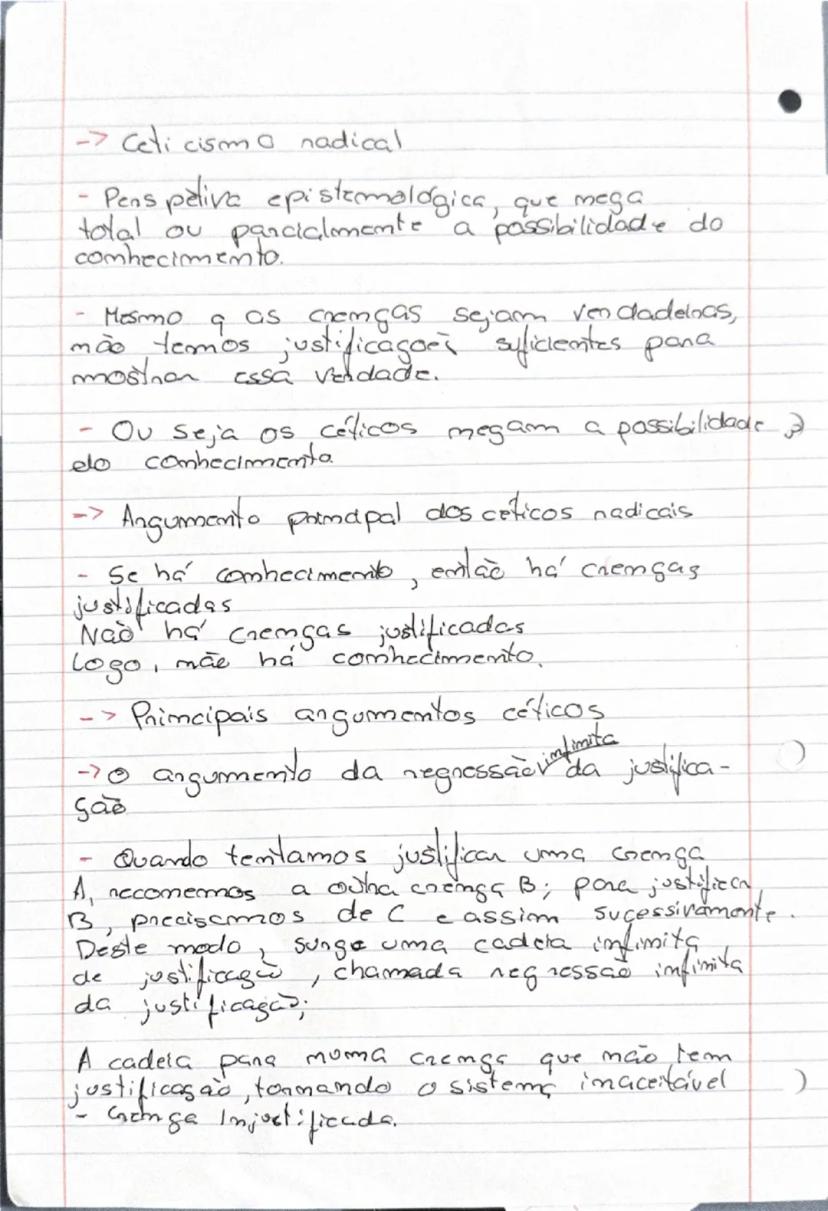 -> Ceticismo radical
- Perspetiva epistemológica, que nega
total ou parcialmente a possibilidade do
conhecimento.
- Mesmo q as crenças sejam verdadeiras,
não temos justificações suficientes para
mostrar essa verdade.
- Ou seja os céticos negam a possibilidade
do conhecimento
-> Argumento principal dos céticos radicais
- Se há conhecimento, então há crenças
justificadas
Não há crenças justificadas
Logo, não há conhecimento.
-> Principais argumentos céticos
-> O argumento da regressão infinita da justifica-
ção
- Quando tentamos justificar uma crença
A, recorremos a outra crença B; para justificar
B, precisamos de C e assim sucessivamente.
Deste modo, surge uma cadeia infinita
de justificação, chamada regressão infinita
da justificação;
A cadeia para numa crença que não tem
justificação, tornando o sistema inaceitável
- Crença Injustificada.